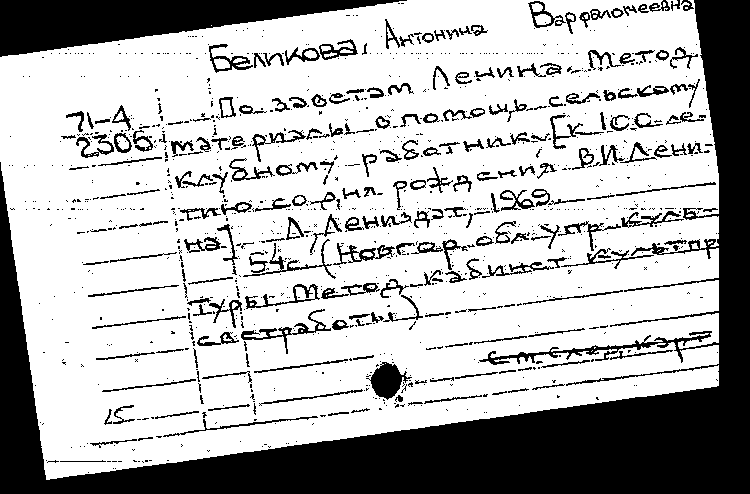 Беликова, Антонина Варфаломеевна
71-4
2306
По заветам Ленина. Метод.
материалы в помощь сельскому
клубному работнику. [К 100-ле-
тию со дня рождения В.И. Лени-
на]. Л., Лениздат, 1969.
54с. (Новгор. обл. упр. куль-
туры. Метод. кабинет культпр
светработы)
См. след. карт
15